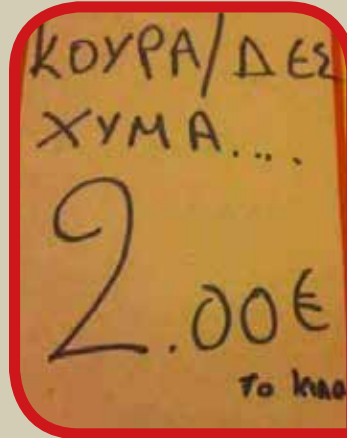 ΚΟΥΡΑ/ΔΕΣ
ΧΥΜΑ....
2.00€
ΤΟ ΚΙΛΟ